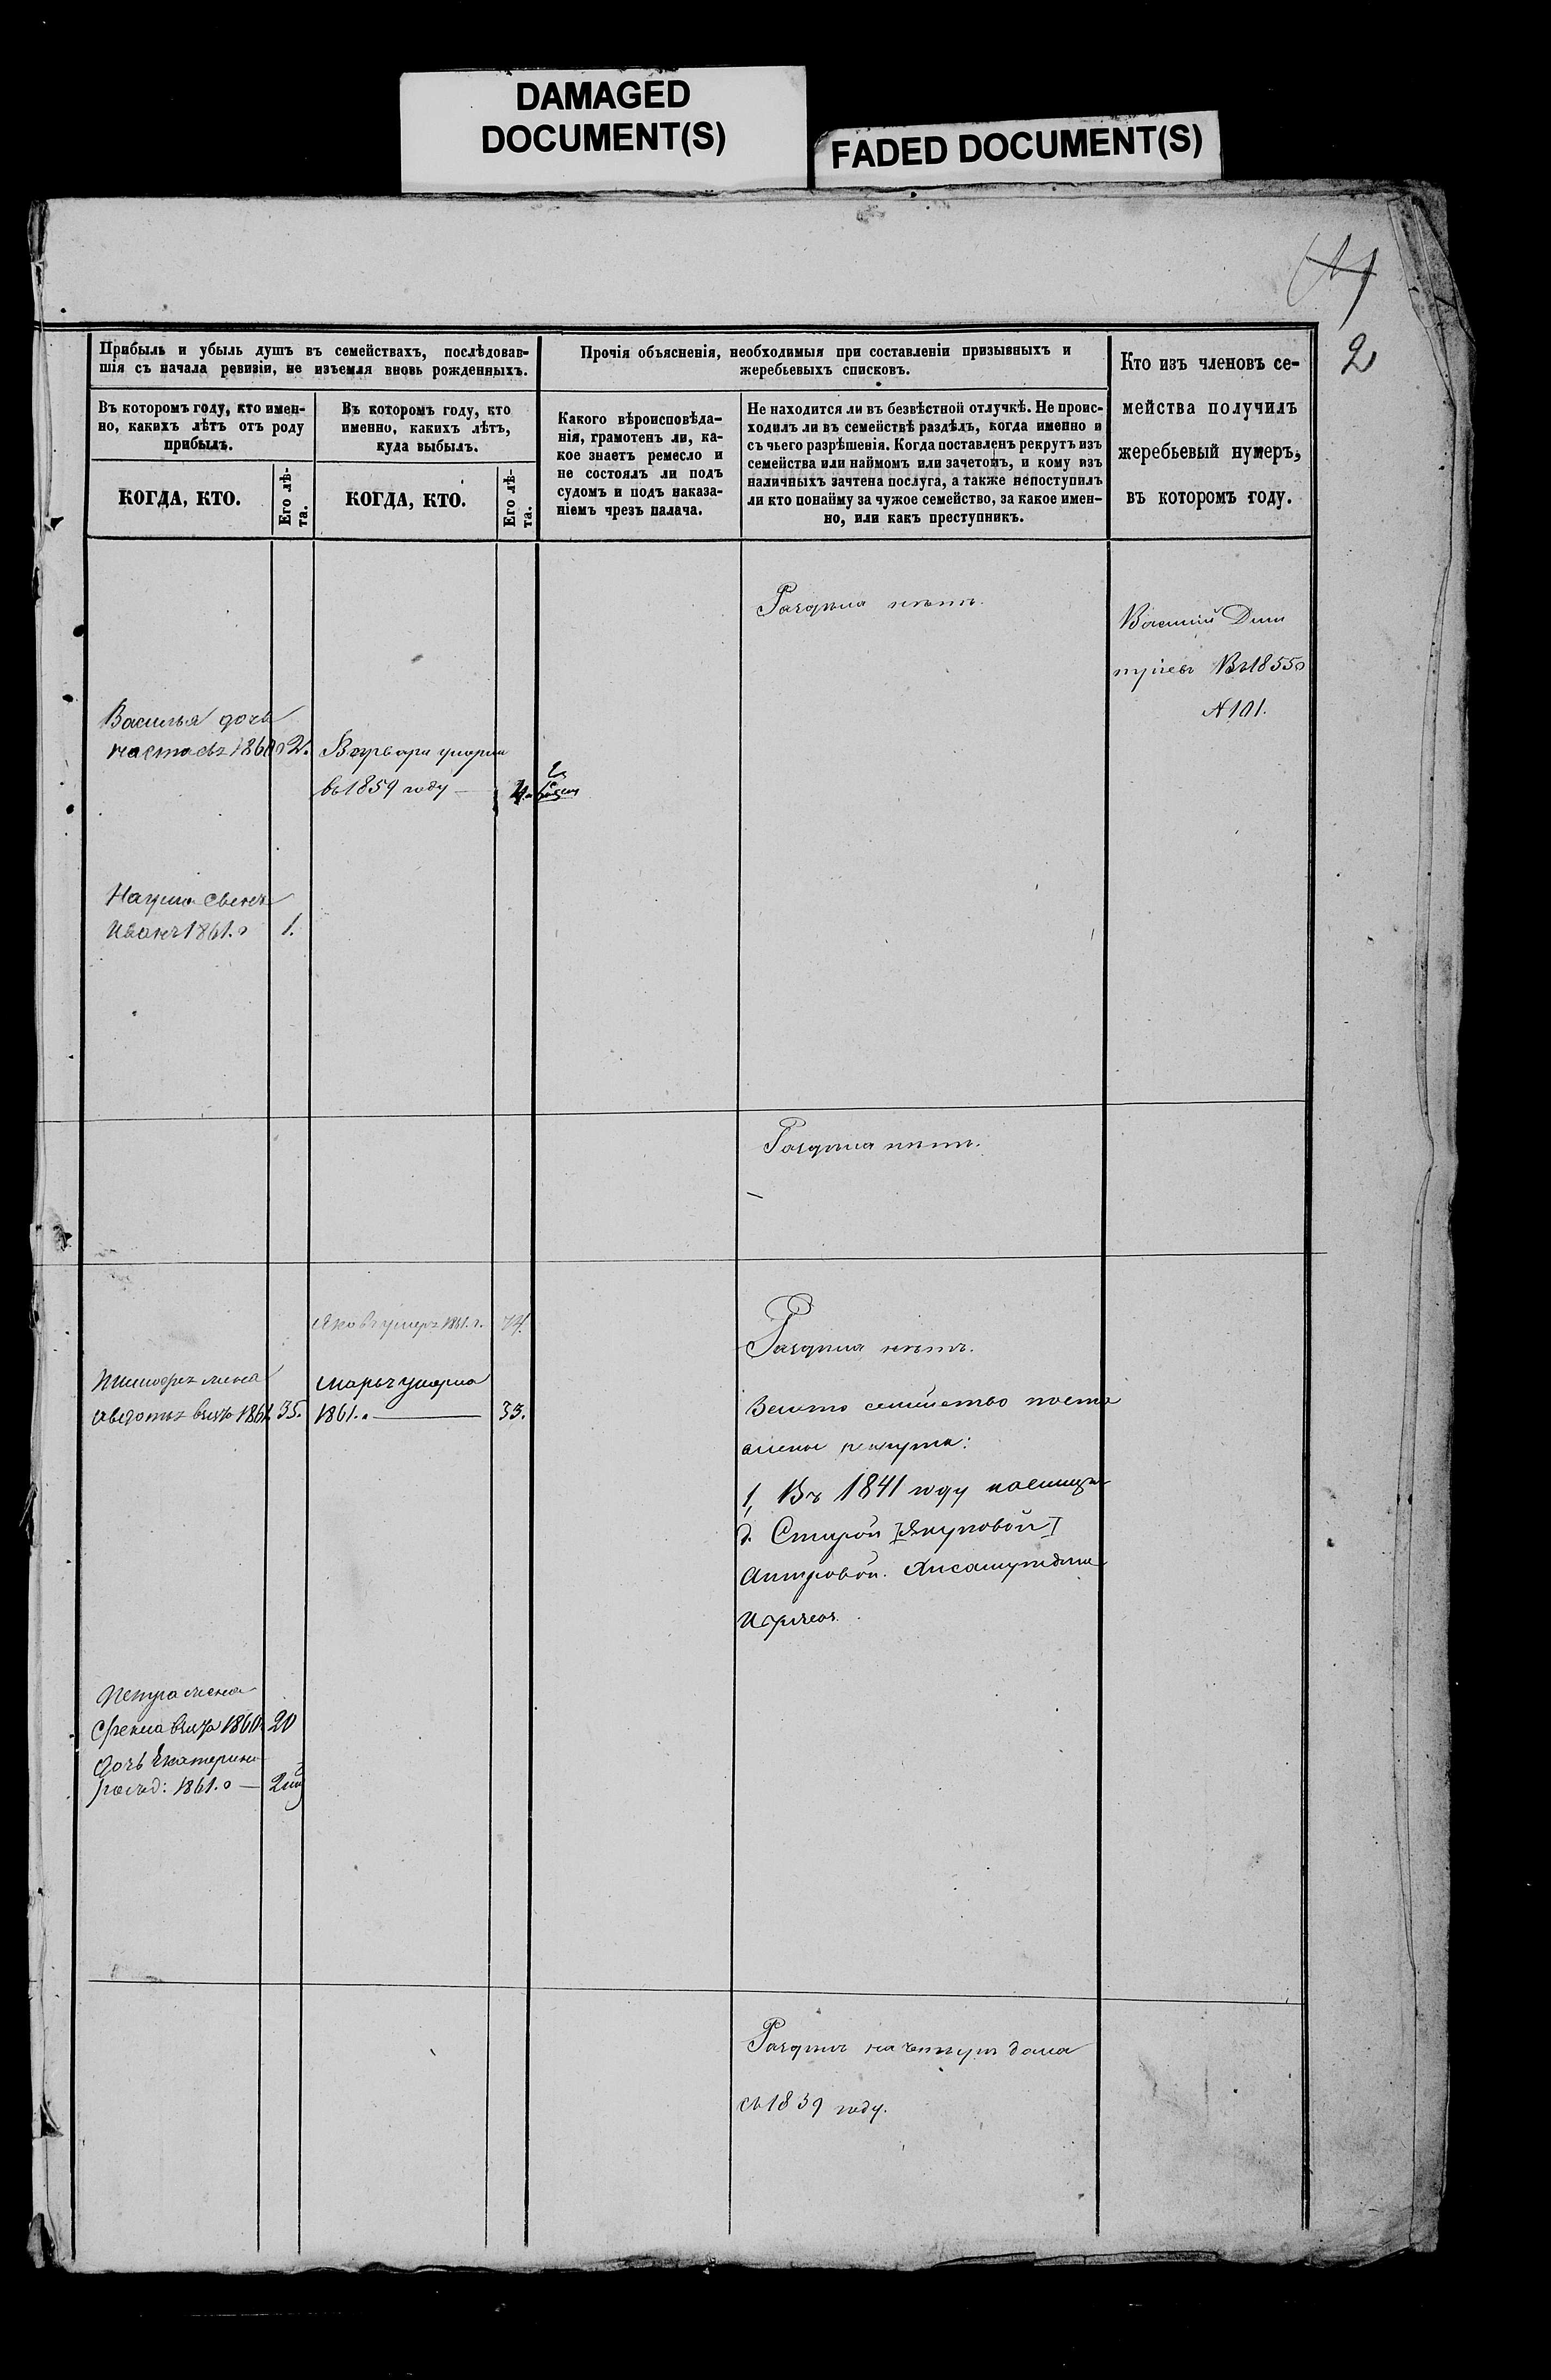 DAMAGED
DOCUMENT(S)
FADED DOCUMENT(S)
2
Прибыль и убыль душъ въ семействахъ, послѣдовав-
шія съ начала ревизіи, не изъемля вновь рожденныхъ.
Прочія объясненія, необходимыя при составленіи призывныхъ и
жеребьевыхъ списковъ.
Кто изъ членовъ се-
мейства получилъ
жеребьевый нумеръ,
въ которомъ году.
Въ которомъ году, кто имен-
но, какихъ лѣтъ отъ роду
прибылъ.
Въ которомъ году, кто
именно, какихъ лѣтъ,
куда выбылъ.
Какого вѣроисповѣда-
нія, грамотенъ ли, ка-
кое знаетъ ремесло и
не состоялъ ли подъ
судомъ и подъ наказа-
ніемъ чрезъ палача.
Не находится ли въ безвѣстной отлучкѣ. Не проис-
ходилъ ли въ семействѣ раздѣлъ, когда именно и
съ чьего разрѣшенія. Когда поставленъ рекрутъ изъ
семейства или наймомъ или зачетомъ, и кому изъ
наличныхъ зачтена послуга, а также непоступилъ
ли кто понайму за чужое семейство, за какое имен-
но, или какъ преступникъ.
КОГДА, КТО.
Его лѣ-
та.
КОГДА, КТО.
Его лѣ-
та.
Раздѣла нѣтъ.
Василій Дми
тріевъ Въ 1855
№ 101.
Василья дочь
1860 2.
Варвара умерла
въ 1859 году —
4
сынъ
Иванъ 1861. 1.
Раздѣла нѣтъ.
Яковъ умеръ 1861. 74.
Раздѣла нѣтъ.
Тимофея жена
Авдотья взята 1861. 35.
Марья умерла
1861. — 33.
семейство поста
влены рекруты:
1, Въ 1841 году
д. Старой [Якуповой]
Петра жена
взята 1860. 20
дочь Екатерина
рожд: 1861. —
Раздѣлъ на четыре дома
съ 1839 году.